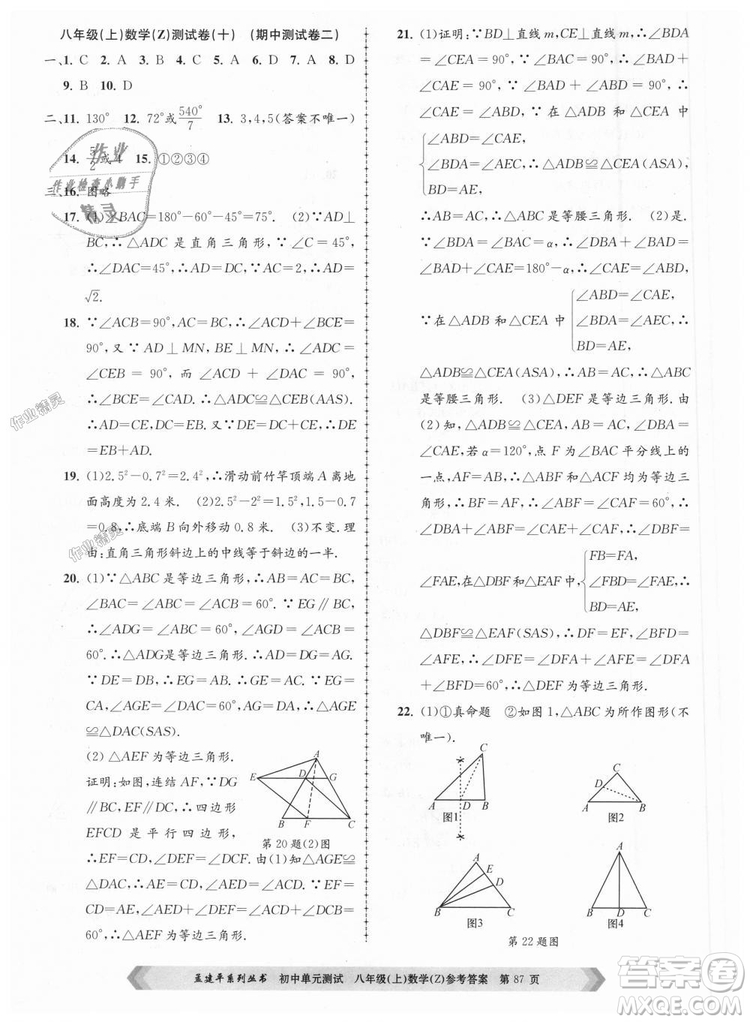 八年级(上)数学(Z)测试卷(十) (期中测试卷二)
一、1. C 2. A 3. B 4. C 5. A 6. D 7. A 8. D
9. B 10. D
二、11. 130° 12. 72°或540°/7 13. 3,4,5(答案不唯一)
14. 5/2或4 15. ①②③④
三、16. 图略
17. (1)∠BAC=180°-60°-45°=75°. (2)∵AD⊥
BC,∴△ADC是直角三角形.∵∠C=45°,
∴∠DAC=45°,∴AD=DC.∵AC=2,∴AD=
√2.
18. ∵∠ACB=90°,∴∠ACD+∠BCE=90°,
又∵AD⊥MN,BE⊥MN,∴∠ADC=
∠CEB=90°.∴∠BCE+∠CBE=90°,
∴∠ACD=∠CBE.在△ADC和△CEB中,
∴△ADC≌△CEB(AAS).
∴AD=CE,DC=EB.又∵DE=DC+CE,∴DE
=EB+AD.
19. (1)2.5²-0.7²=2.4²,∴滑动前竹竿顶端A离地
面高度为2.4米. (2)2.5²-2²=1.5²,1.5-0.7
=0.8,∴底端B向外移动0.8米. (3)不变.理
由:直角三角形斜边上的中线等于斜边的一半.
20. (1)∵△ABC是等边三角形,∴AC=BC,
∠BAC=∠ABC=∠ACB=60°.∵EG∥BC,
∴∠ADG=∠ABC=60°,∠AGD=∠ACB=
60°.∴△ADG是等边三角形.∴AD=DG=AG.
∵DE=DB,∴EG=AB,∴GE=AC.∵EG=
AB=CA,∴∠AGE=∠DAC=60°,∴△AGE
≌△DAC(SAS).
(2)△AEF为等边三角形.
证明:如图,∵DG
∥BC,EF∥DC,∴四边形
EFCD是平行四边形,
∴EF=DC,∠DEF=∠DCF.由(1)知△AGE≌
△DAC,∴AE=CD,∠AED=∠ACD.∵EF=
CD=AE,∠AED+∠DEF=∠ACD+∠DCB=
60°,∴△AEF为等边三角形.
A
E D G
B F C
第20题(2)图
21. (1)证明:∵BD⊥直线m,CE⊥直线m,∴∠BDA=
∠CEA=90°.∵∠BAC=90°,∴∠BAD+
∠CAE=90°.∵∠BAD+∠ABD=90°,
∴∠CAE=∠ABD.∵在△ADB和△CEA中,
∠ABD=∠CAE,
∠BDA=∠CEA,
AD=CE,
∴△ADB≌△CEA(AAS),
∴AB=AC,∴△ABC是等腰三角形. (2)是.
∵∠BDA=∠BAC=α,∴∠DBA+∠BAD=
∠BAD+∠CAE=180°-α,∴∠DBA=∠CAE,
∵在△ADB和△CEA中,
∠ABD=∠CAE,
AD=CE,
∠BDA=∠AEC,
∴△ADB≌△CEA(ASA),∴AB=AC,∴△ABC
是等腰三角形. (3)△DEF是等边三角形.由
(2)知,△ADB≌△CEA,BD=AE,∠DBA=
∠CAE,∵α=120°,点F为∠BAC平分线上的
一点,∴BF=AF=AB,∴∠ABF=∠CAF=60°,
∴∠DBA+∠ABF=∠CAE+∠CAF.∴∠DBF=
∠FAE,在△DBF和△EAF中,
FB=FA,
∠FBD=∠FAE,
BD=AE,
△DBF≌△EAF(SAS),∴DF=EF,∠BFD=
∠AFE,∴∠DFE=∠DFA+∠AFE=∠DFA+
∠BFD=60°.∴△DEF为等边三角形.
22. (1)①真命题 ②如图1,△ABC为所作图形(不
唯一).
C
A D B
图1
C
D
A B
图2
A
E
D
B C
图3
A
B D C
第22题图
孟建平系列丛书 初中单元测试 八年级(上)数学(Z)参考答案 第87页
作业精灵
作业精灵
作业
作业检查小助手
精灵